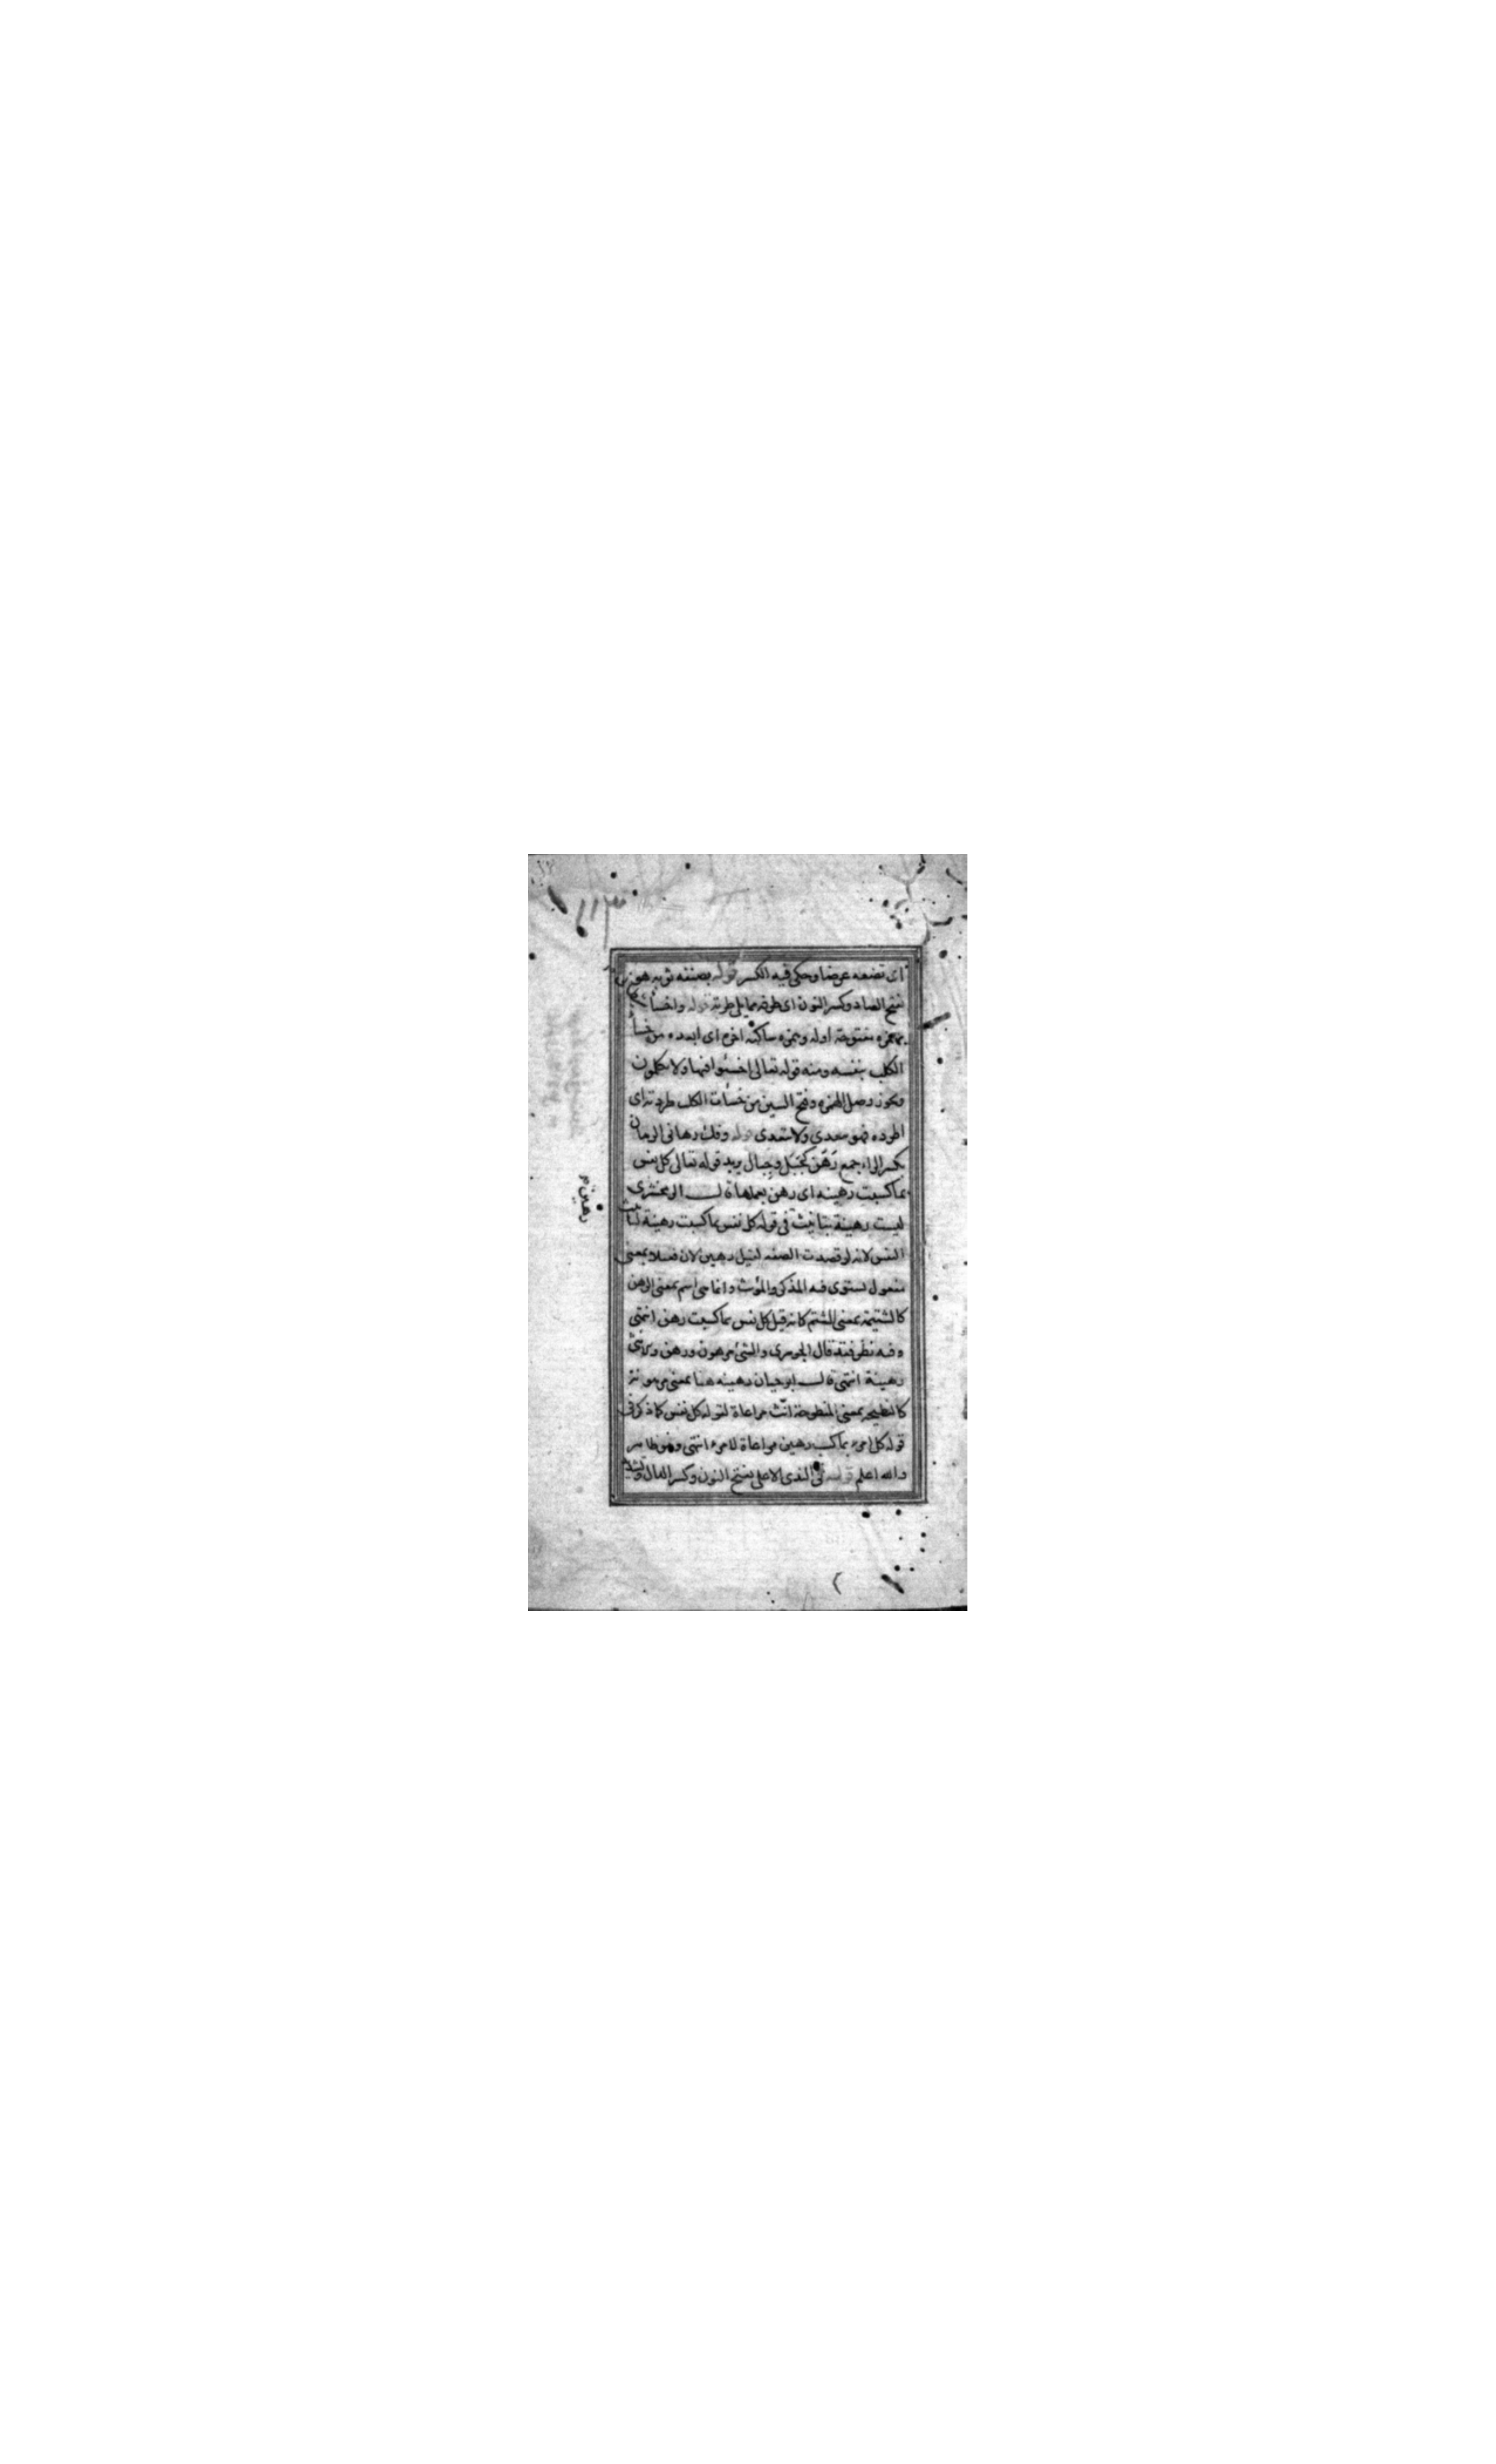 اى تضعه عرضا وحكى فيه الكسر قوله بصنفه ثوبه هو
بفتح الصاد وكسر النون اى طرفه مما يلى طرته قوله واخسأ
بهمزه مفتوحة اوله وبهمزه ساكنه اخره اى ابعده من خسأ
الكلب بنفسه ومنه قوله تعالى اخسئوا فيها ولا تكلمون
ويكون وصل الهمزه وفتح السين من خسأت الكلب طردته اى
اطرده فهو يتعدى ولا يتعدى قوله وفك رهانى الرهان
بكسر الراء جمع رهن كحبل وحبال يريد قوله تعالى كل نفس
بما كسبت رهينه اى رهن بعملها قال الزمخشرى
ليست رهينة بتانيث فى قوله كل نفس بما كسبت رهينة لتانيث
النفس لانه لو قصدت الصفه لقيل رهين لان فعيلا بمعنى
مفعول يستوى فيه المذكر والمؤنث وانما هى اسم بمعنى الرهن
كالشتيمة بمعنى الشتم كانه قيل كل نفس بما كسبت رهن انتهى
وفيه نظر فقد قال الجوهرى والشئ مرهون ورهن والانثى
رهينة انتهى قال ابو حيان رهينه هنا بمعنى مرهونة
كالنطيحه بمعنى المنطوحة انّث مراعاة لقوله كل نفس كما ذكر فى
قوله كل امرء بما كسب رهين مراعاة لامرء انتهى وهو ظاهر
والله اعلم قوله فى الندى الاعلى بفتح النون وكسر الدال وتشديد
رهين